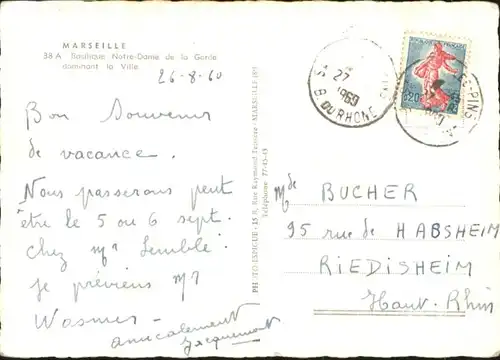 MARSEILLE
38 A Basilique Notre-Dame de la Garde
dominant la Ville
26-8-60
Bon Souvenir
de vacance.
Nous passerons peut
être le 5 ou 6 sept.
chez Mr Semble!
je préviens Mr
Wasmer
amicalement
Jacquemont
PHOTO ESPIGUE - 15 R, Rue Raymond Teisseire - MARSEILLE (8e)
Téléphone 77-43-43
27
1960
B. DU RHONE
0,20
Mde BUCHER
95 rue de HABSHEIM
RIEDISHEIM
Haut-Rhin